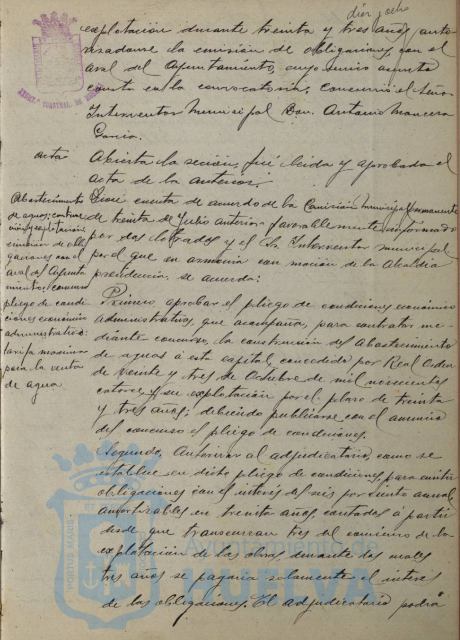 diez y ocho
explotación durante treinta y tres años, auto-
rizandose la emisión de obligaciones, con el
aval del Ayuntamiento, cuyo unico asunto
consta en la convocatoria. Concurrió el Señor
Interventor Municipal Don Antonio Mancera
García.
acta
Abierta la sesión, fué leida y aprobada el
acta de la anterior.
Abastecimiento
de aguas; construc-
ción y explotación
emisión de obli-
gaciones con el
aval del Ayunta
miento; concurso
pliego de condi-
ciones económico
administrativo:
tarifa maxima
para la venta
de agua
Dióse cuenta de acuerdo de la Comisión municipal permanente
de treinta de Julio anterior favorablemente informado
por dos letrados y el Sr. Interventor municipal
por el que en armonía con moción de la Alcaldia
presidencia, se acuerda:
Primero, aprobar el pliego de condiciones económico
administrativas, que acompaña, para contratar me-
diante concurso, la construcción del abastecimiento
de aguas á esta capital, concedido por Real Orden
de veinte y tres de Octubre de mil novecientos
catorce, y su explotación por el plazo de treinta
y tres años; debiendo publicarse con el anuncio
del concurso el pliego de condiciones.
Segundo, Autorizar al adjudicatario, como se
establece en dicho pliego de condiciones, para emitir
obligaciones con el interés del seis por ciento anual,
amortizables en treinta años, contados á partir
desde que transcurran tres del comienzo de la
explotación de las obras durante los cuales
tres años se pagaria solamente el interes
de las obligaciones. El adjudicatario podrá
PORTUS MARIS
Ayuntamiento de
HUELVA